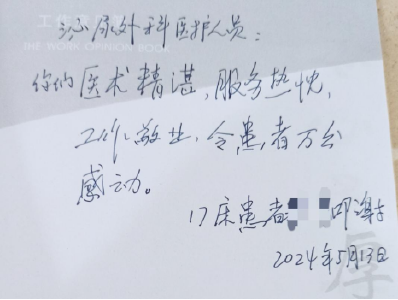 工作意见簿
THE WORK OPINION BOOK
泌尿外科医护人员：
你们医术精湛，服务热忱，
工作敬业，令患者万分
感动。
17床患者 叩谢
2024年5月13日
厚